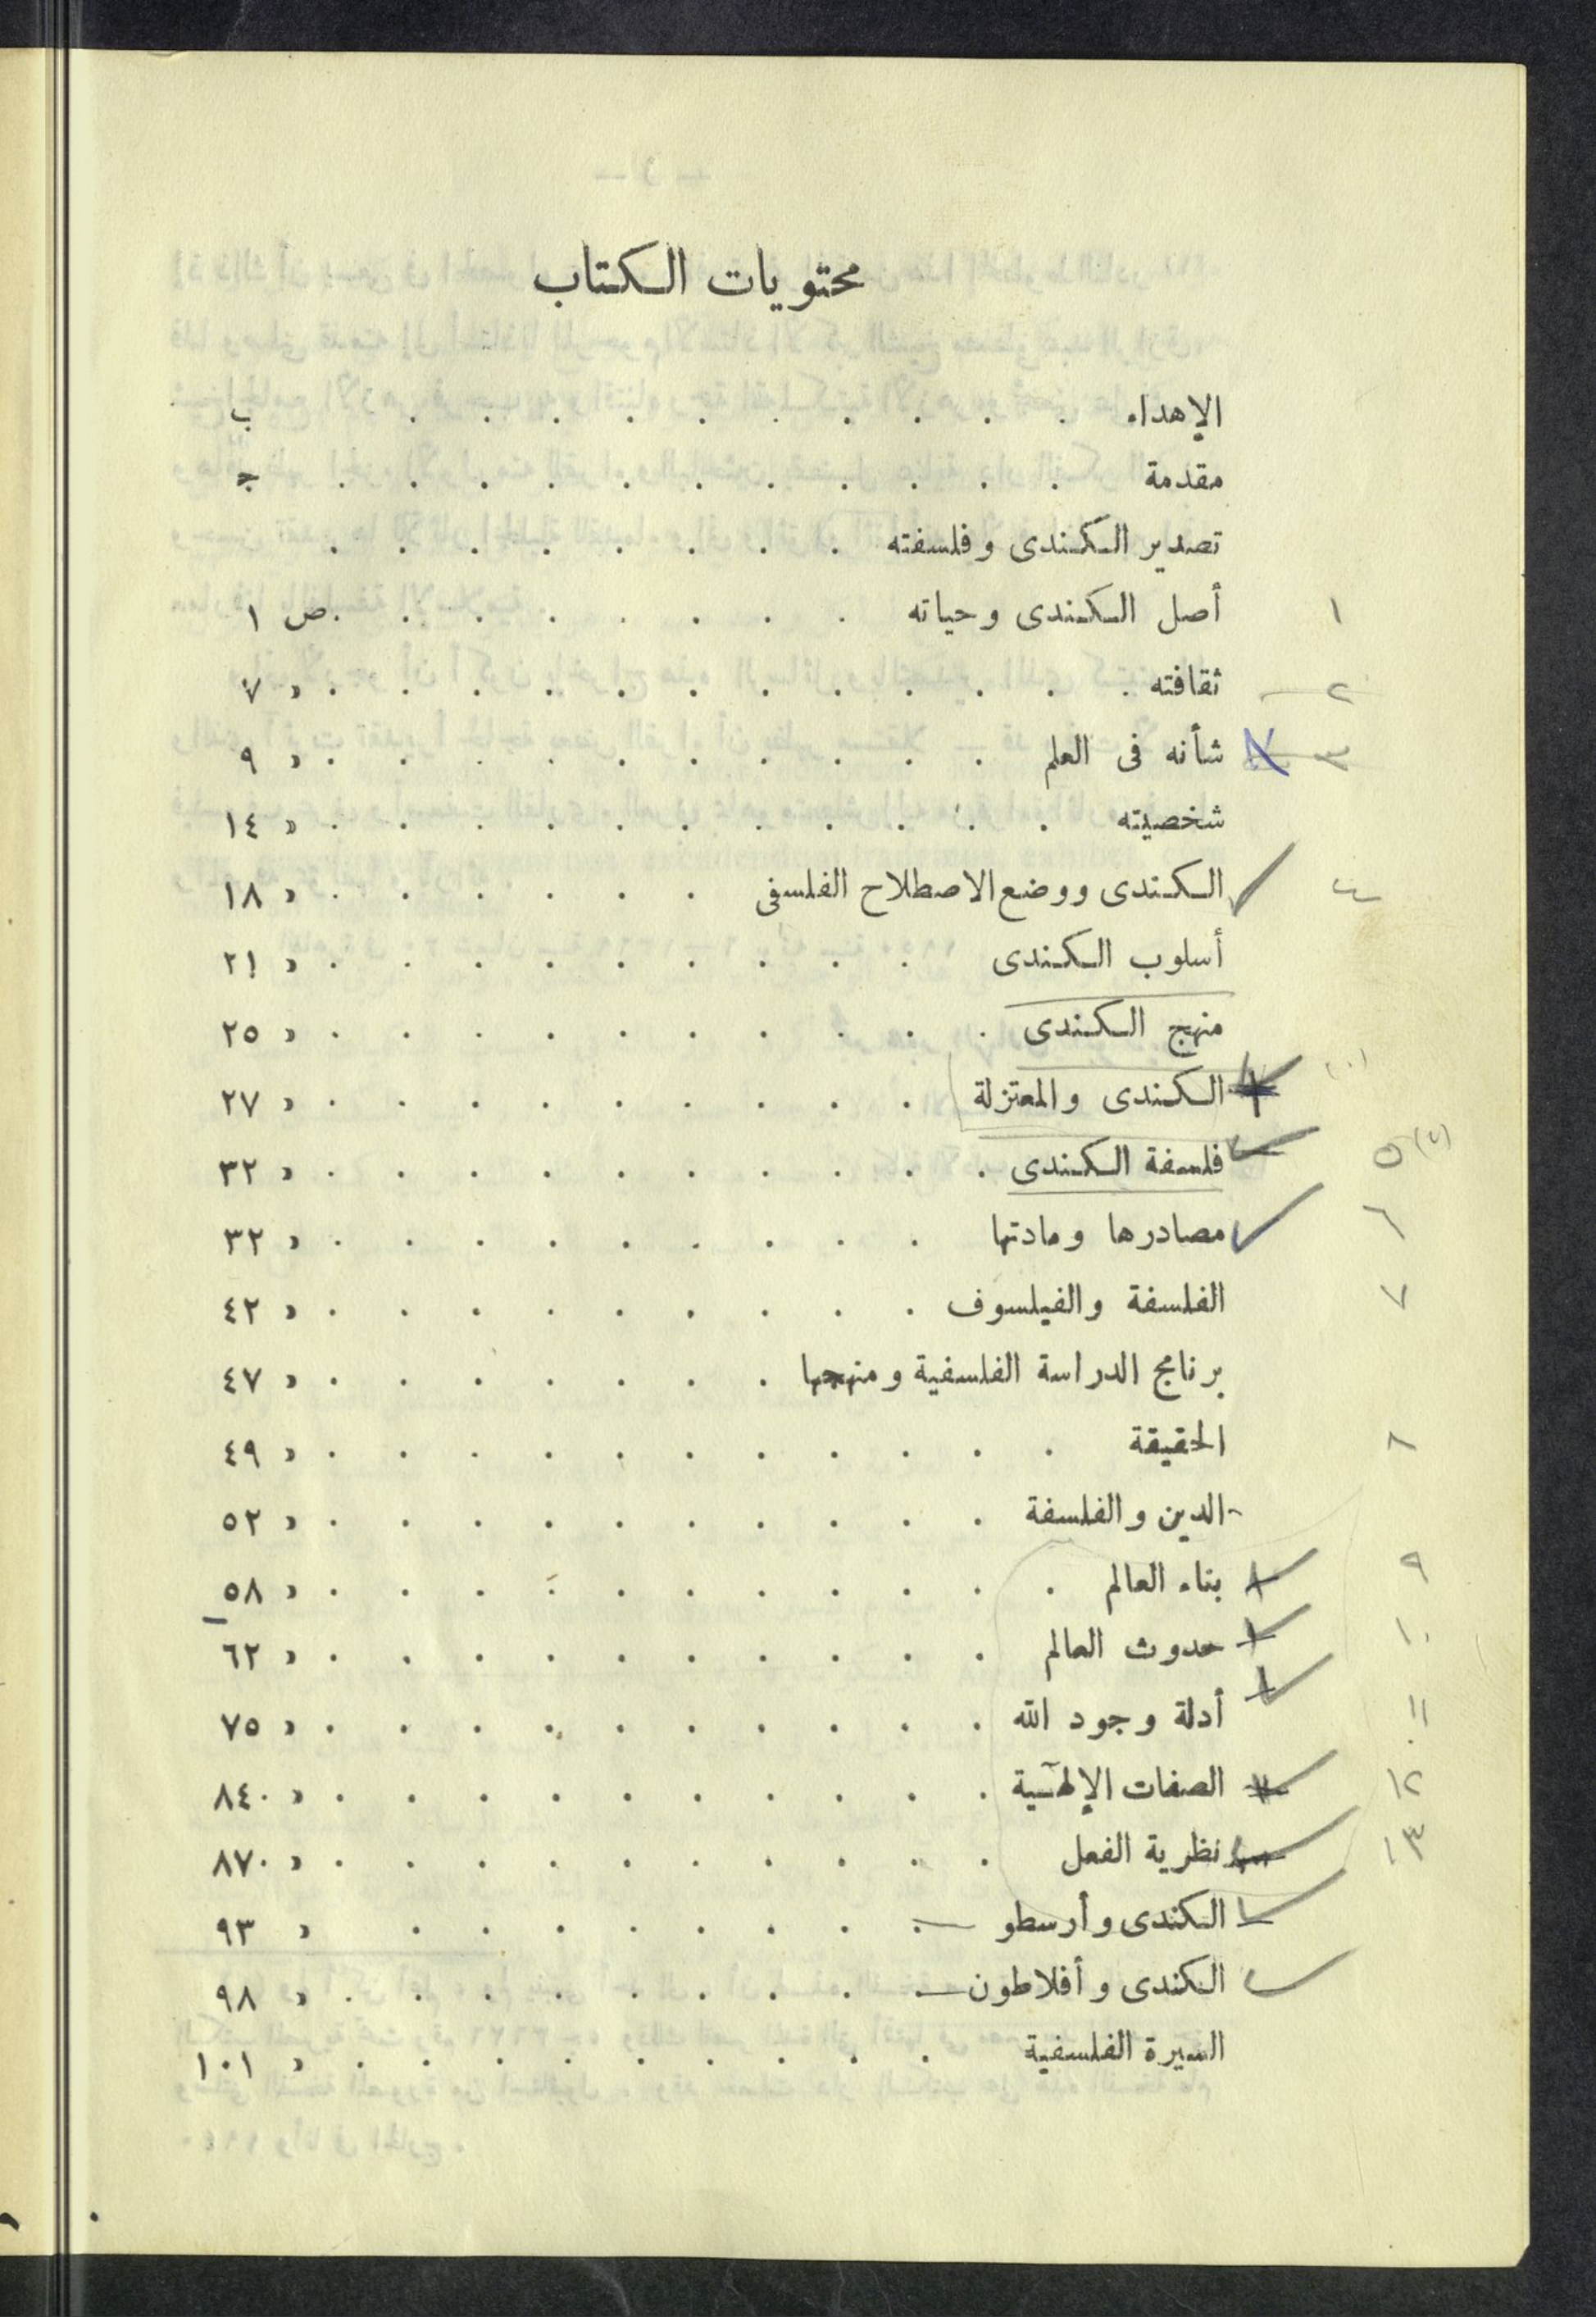 محتويات الكتاب
الإهداء . . . . . . . . . . ب
مقدمة . . . . . . . . . . . ج
تصدير الكندى وفلسفته . . . . . . . .
١ أصل الكندى وحياته . . . . . . . . ص ١
٢ ثقافته . . . . . . . . . . . . » ٧
٣ شأنه فى العلم . . . . . . . . . . » ٩
شخصيته . . . . . . . . . . . » ١٤
٤ الكندى ووضع الاصطلاح الفلسفى . . . . . . » ١٨
أسلوب الكندى . . . . . . . . . » ٢١
منهج الكندى . . . . . . . . . . » ٢٥
(١٠) الكندى والمعتزلة . . . . . . . . . » ٢٧
٥ فلسفة الكندى . . . . . . . . . . » ٣٢
٦ مصادرها ومادتها . . . . . . . . . » ٣٢
٧ الفلسفة والفيلسوف . . . . . . . . . » ٤٢
برنامج الدراسة الفلسفية ومنهجها . . . . . . . » ٤٧
٨ الحقيقة . . . . . . . . . . . » ٤٩
الدين والفلسفة . . . . . . . . . . » ٥٢
٩ بناء العالم . . . . . . . . . . . » ٥٨
١٠ حدوث العالم . . . . . . . . . . » ٦٢
١١ أدلة وجود الله . . . . . . . . . . » ٧٥
١٢ الصفات الإلهية . . . . . . . . . . » ٨٤
١٣ نظرية الفعل . . . . . . . . . . » ٨٧
الكندى وأرسطو . . . . . . . . » ٩٣
الكندى وأفلاطون . . . . . . . . . » ٩٨
السيرة الفلسفية . . . . . . . . . » ١٠١